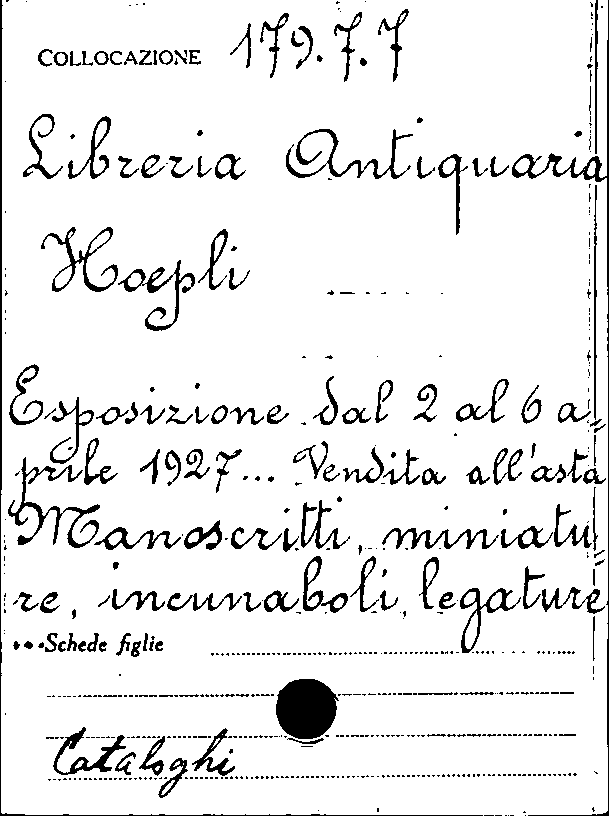 COLLOCAZIONE 179.7.7
Libreria Antiquaria
Hoepli
Esposizione dal 2 al 6 a=
prile 1927... Vendita all'asta
Manoscritti, miniatu=
re, incunaboli, legature
...Schede figlie
Cataloghi